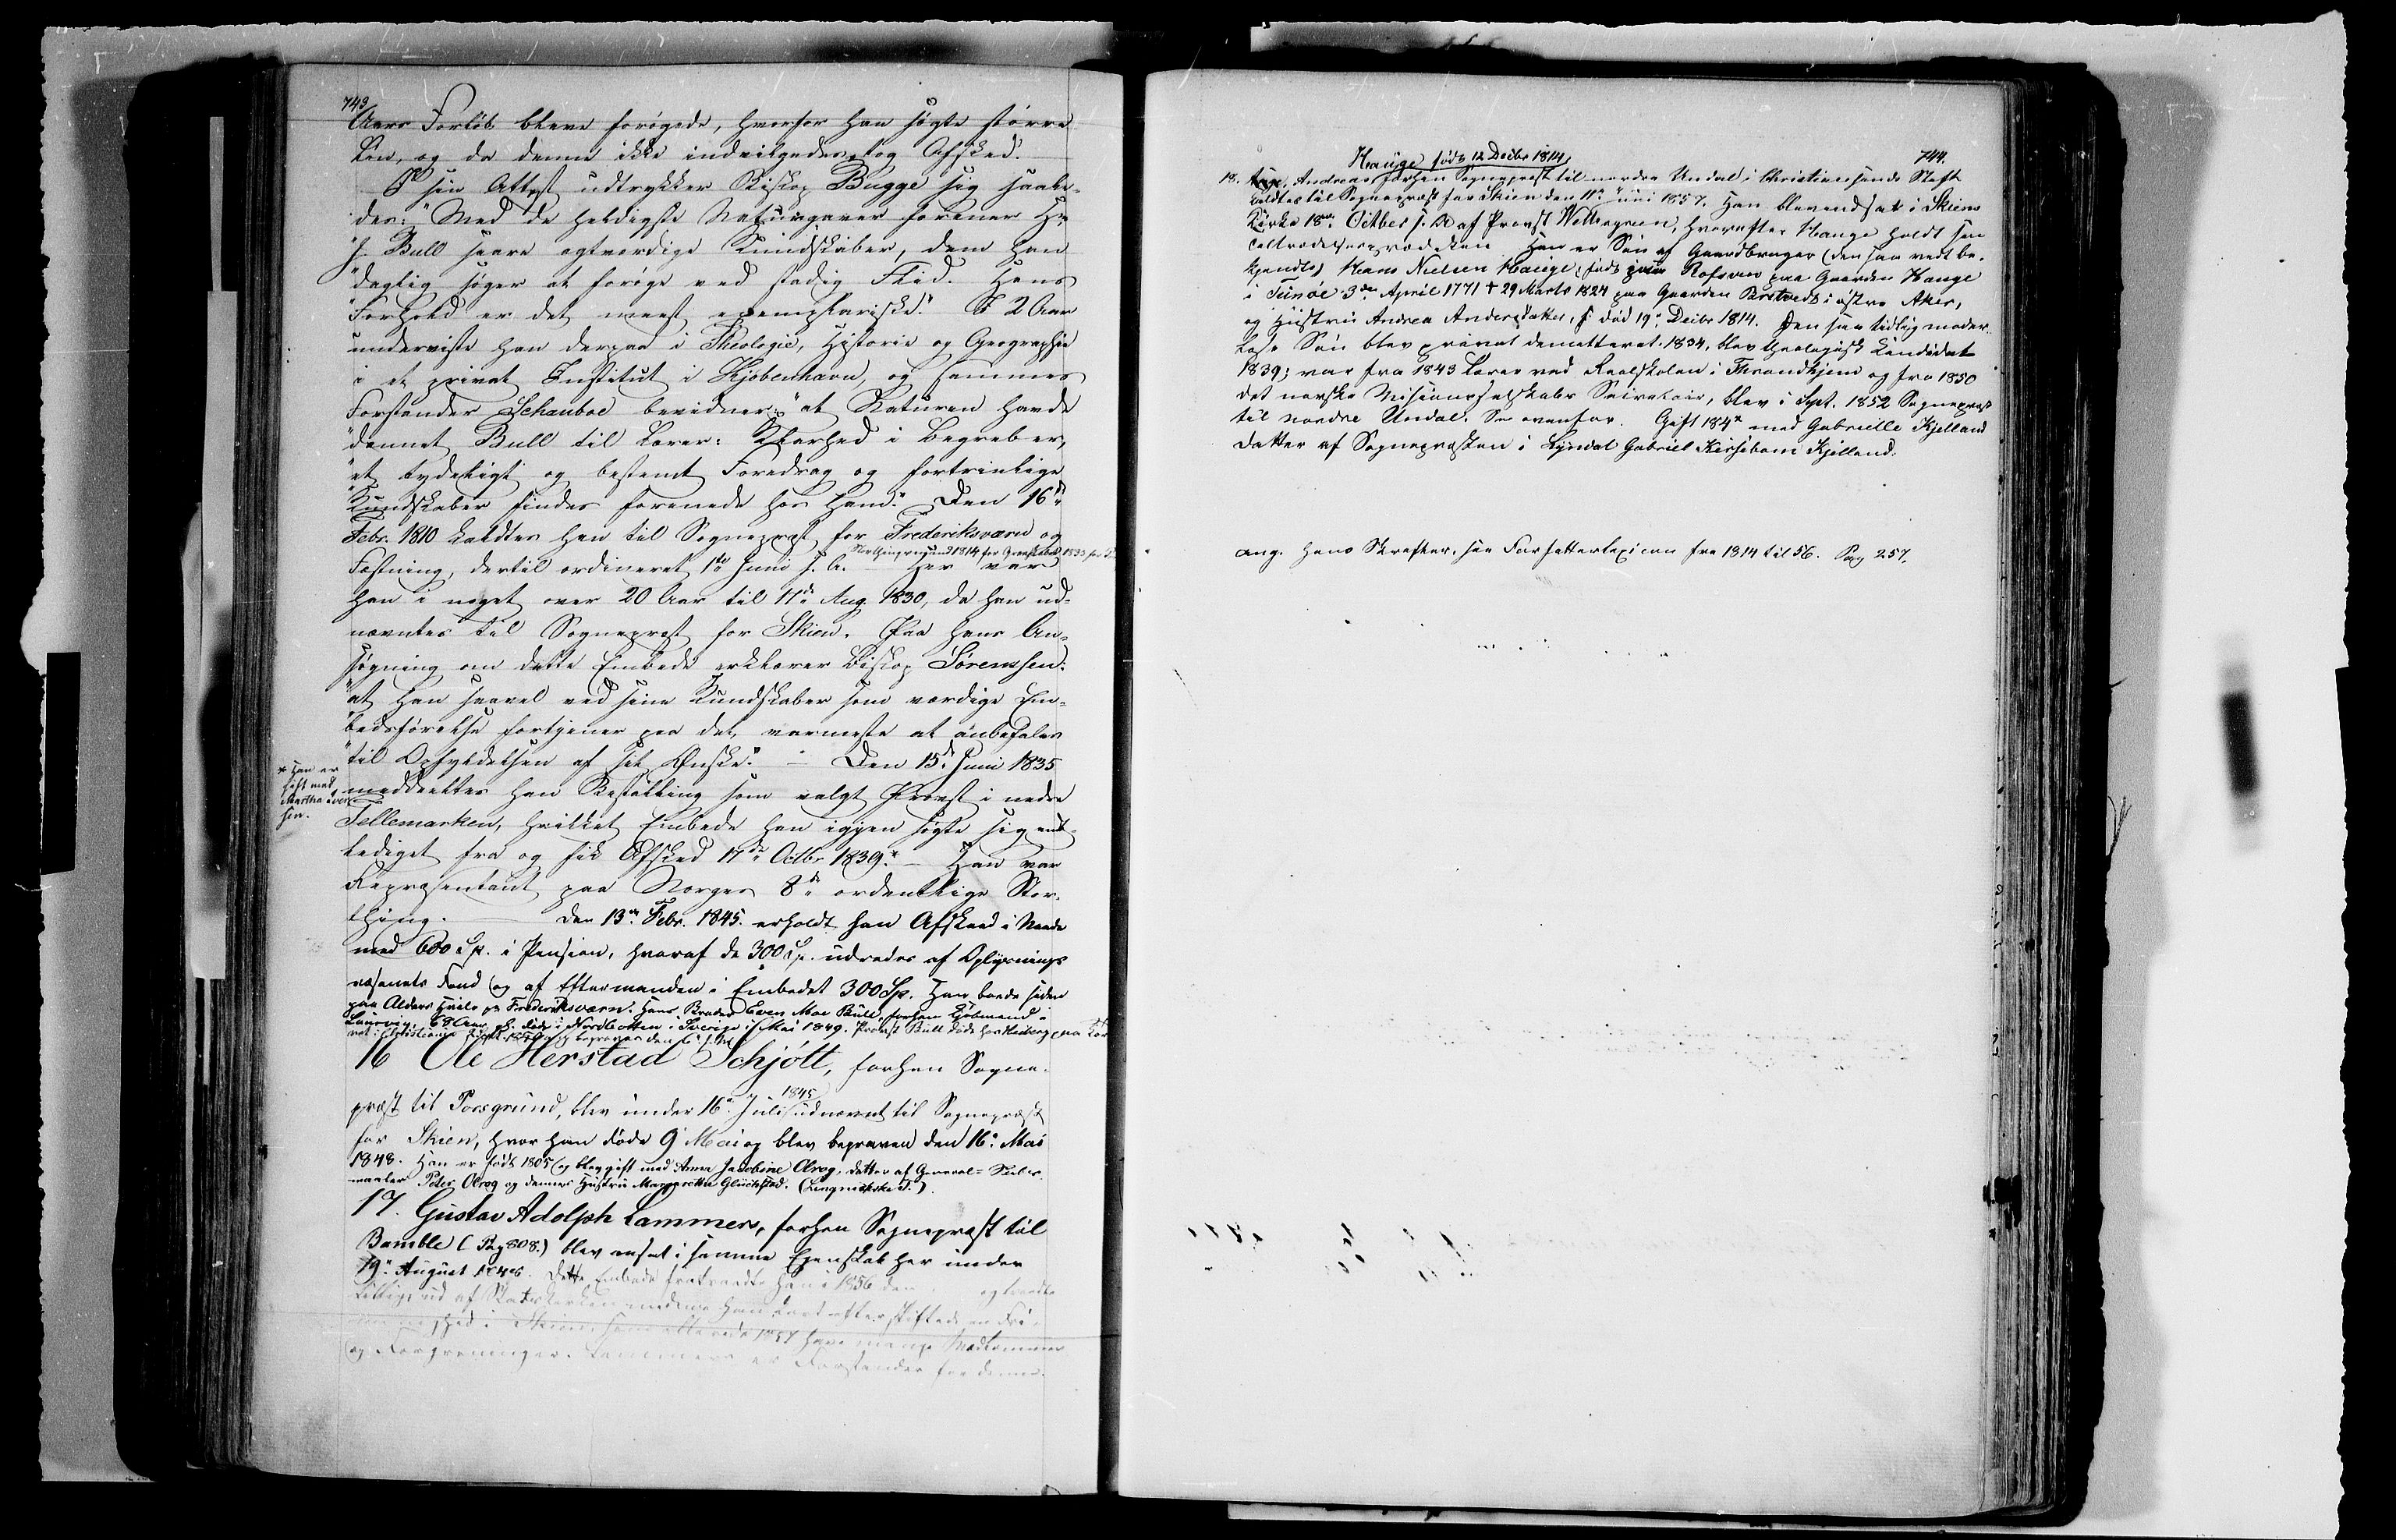 743
Aars Forløb bleve forøgede, hvorfor han søgte større
Løn, og da denne ikke indvilgedes, tog Afsked.
I sin Attest udtrykker Biskop Bugge sig saale-
des: "Med de heldigste Naturgaver forener Hr
"J. Bull saare agtværdige Kundskaber, dem han
"daglig søger at forøge ved stadig Flid. Hans
"Forhold er det meest exemplariske." I 2 Aar
underviste han derpaa i Theologie, Historie og Geographie
i et privat Institut i Kjøbenhavn, og sammes
Forstander Schauboe bevidner, "at Naturen havde
"dannet Bull til Lærer: Klarhed i Begreber,
"et tydeligt og bestemt Foredrag og fortrinlige
"Kundskaber findes forenede hos ham." Den 16de
Febr. 1810 kaldtes han til Sognepræst for Frederiksværn og
Fæstning, dertil ordineret 1ste Juni s. A. Her var
han i noget over 20 Aar til 11te Aug. 1830, da han ud-
nævntes til Sognepræst for Skien. Paa hans An-
søgning om dette Embede erklærer Biskop Sørenssen:
"at han saavel ved sine Kundskaber som værdige Em-
"bedsførelse fortjener paa det varmeste at anbefales
"til Opfyldelsen af sit Ønske." — Den 15de Juni 1835
* Han er
gift med
Martha Iver
sen.
meddeeltes han Bestalling som valgt Provst i nedre
Tellemarken, hvilket Embede han igjen søgte sig ent-
lediget fra og fik Afsked 17de Octbr 1839.* — Han var
Repræsentant paa Norges 8de ordentlige Stor-
thing. Den 13de Febr. 1845 erholdt han Afskeed i Naade
med 600 Sp. i Pension, hvoraf de 300 Sp. udredes af Oplysnings
væsenets Fond og af Eftermanden i Embedet 300 Sp. Han boede siden
paa Frederiksværn. Hans Broder Even Moe Bull, forhen Kjøbmand i
Laurvig, 68 Aar døde i Nordbotten i Sverige i Mai 1849. Provst Bull døde hos
16 Ole Herstad Schjött, forhen Sogne-
præst til Porsgrund, blev under 16de Juli 1845 udnævnt til Sognepræst
for Skien, hvor han døde 9 Mai og blev begraven den 16de Mai
1848. Han er født 1805 og blev gift med Anna Jacobine Olrog, datter af General-
Peter Olrog og dennes Hustru Margarethe Glückstad.
17. Gustav Adolph Lammers, forhen Sognepræst til
Bamble (Pag 808.) blev ansat i samme Egenskab her under
19de August 1848. Dette Embede fratraadte han i 1856 den og traadte
tillige ud af Statskirken medens han kort efter stiftede en Fri-
menighed i Skien, som allerede 1857 have mange Medlemmer
og Forgreninger. Lammers er Forstander for denne.
Hauge født 12 Decbr 1814
744.
18. Andreas forhen Sognepræst til nordre Undal i Christiansands Stift
kaldtes til Sognepræst for Skien den 11te Juni 1857. Han blev indsat i Skiens
Kirke 18de Octber s. A. af Provst hvorefter Hauge holdt sin
Tiltrædelsesprædiken. Han er Søn af Gaardbruger (den saa vidt be-
kjendte) Hans Nielsen Hauge, født paa Gaarden Hauge
i Tunøe 3die April 1771 † 29 Marts 1824 paa Gaarden Bredtvedt i østre Aker,
og Hustru Andrea Andersdatter, død 19de Decbr 1814. Den saa tidlig moder-
løse Søn blev privat dimitteret 1834, blev theologisk Candidat
1839; var fra 1843 Lærer ved Realskolen i Throndhjem og fra 1850
det norske Missionsselskabs Secretair, blev i Sept. 1852 Sognepræst
til nordre Undal. See ovenfor. Gift 184* med Gabrielle Kjelland
Datter af Sognepræsten i Lyngdal Gabriel Kirsebom Kjelland.
Ang. hans Skrifter, see Forfatterlexicon fra 1814 til 56. Pag 257.